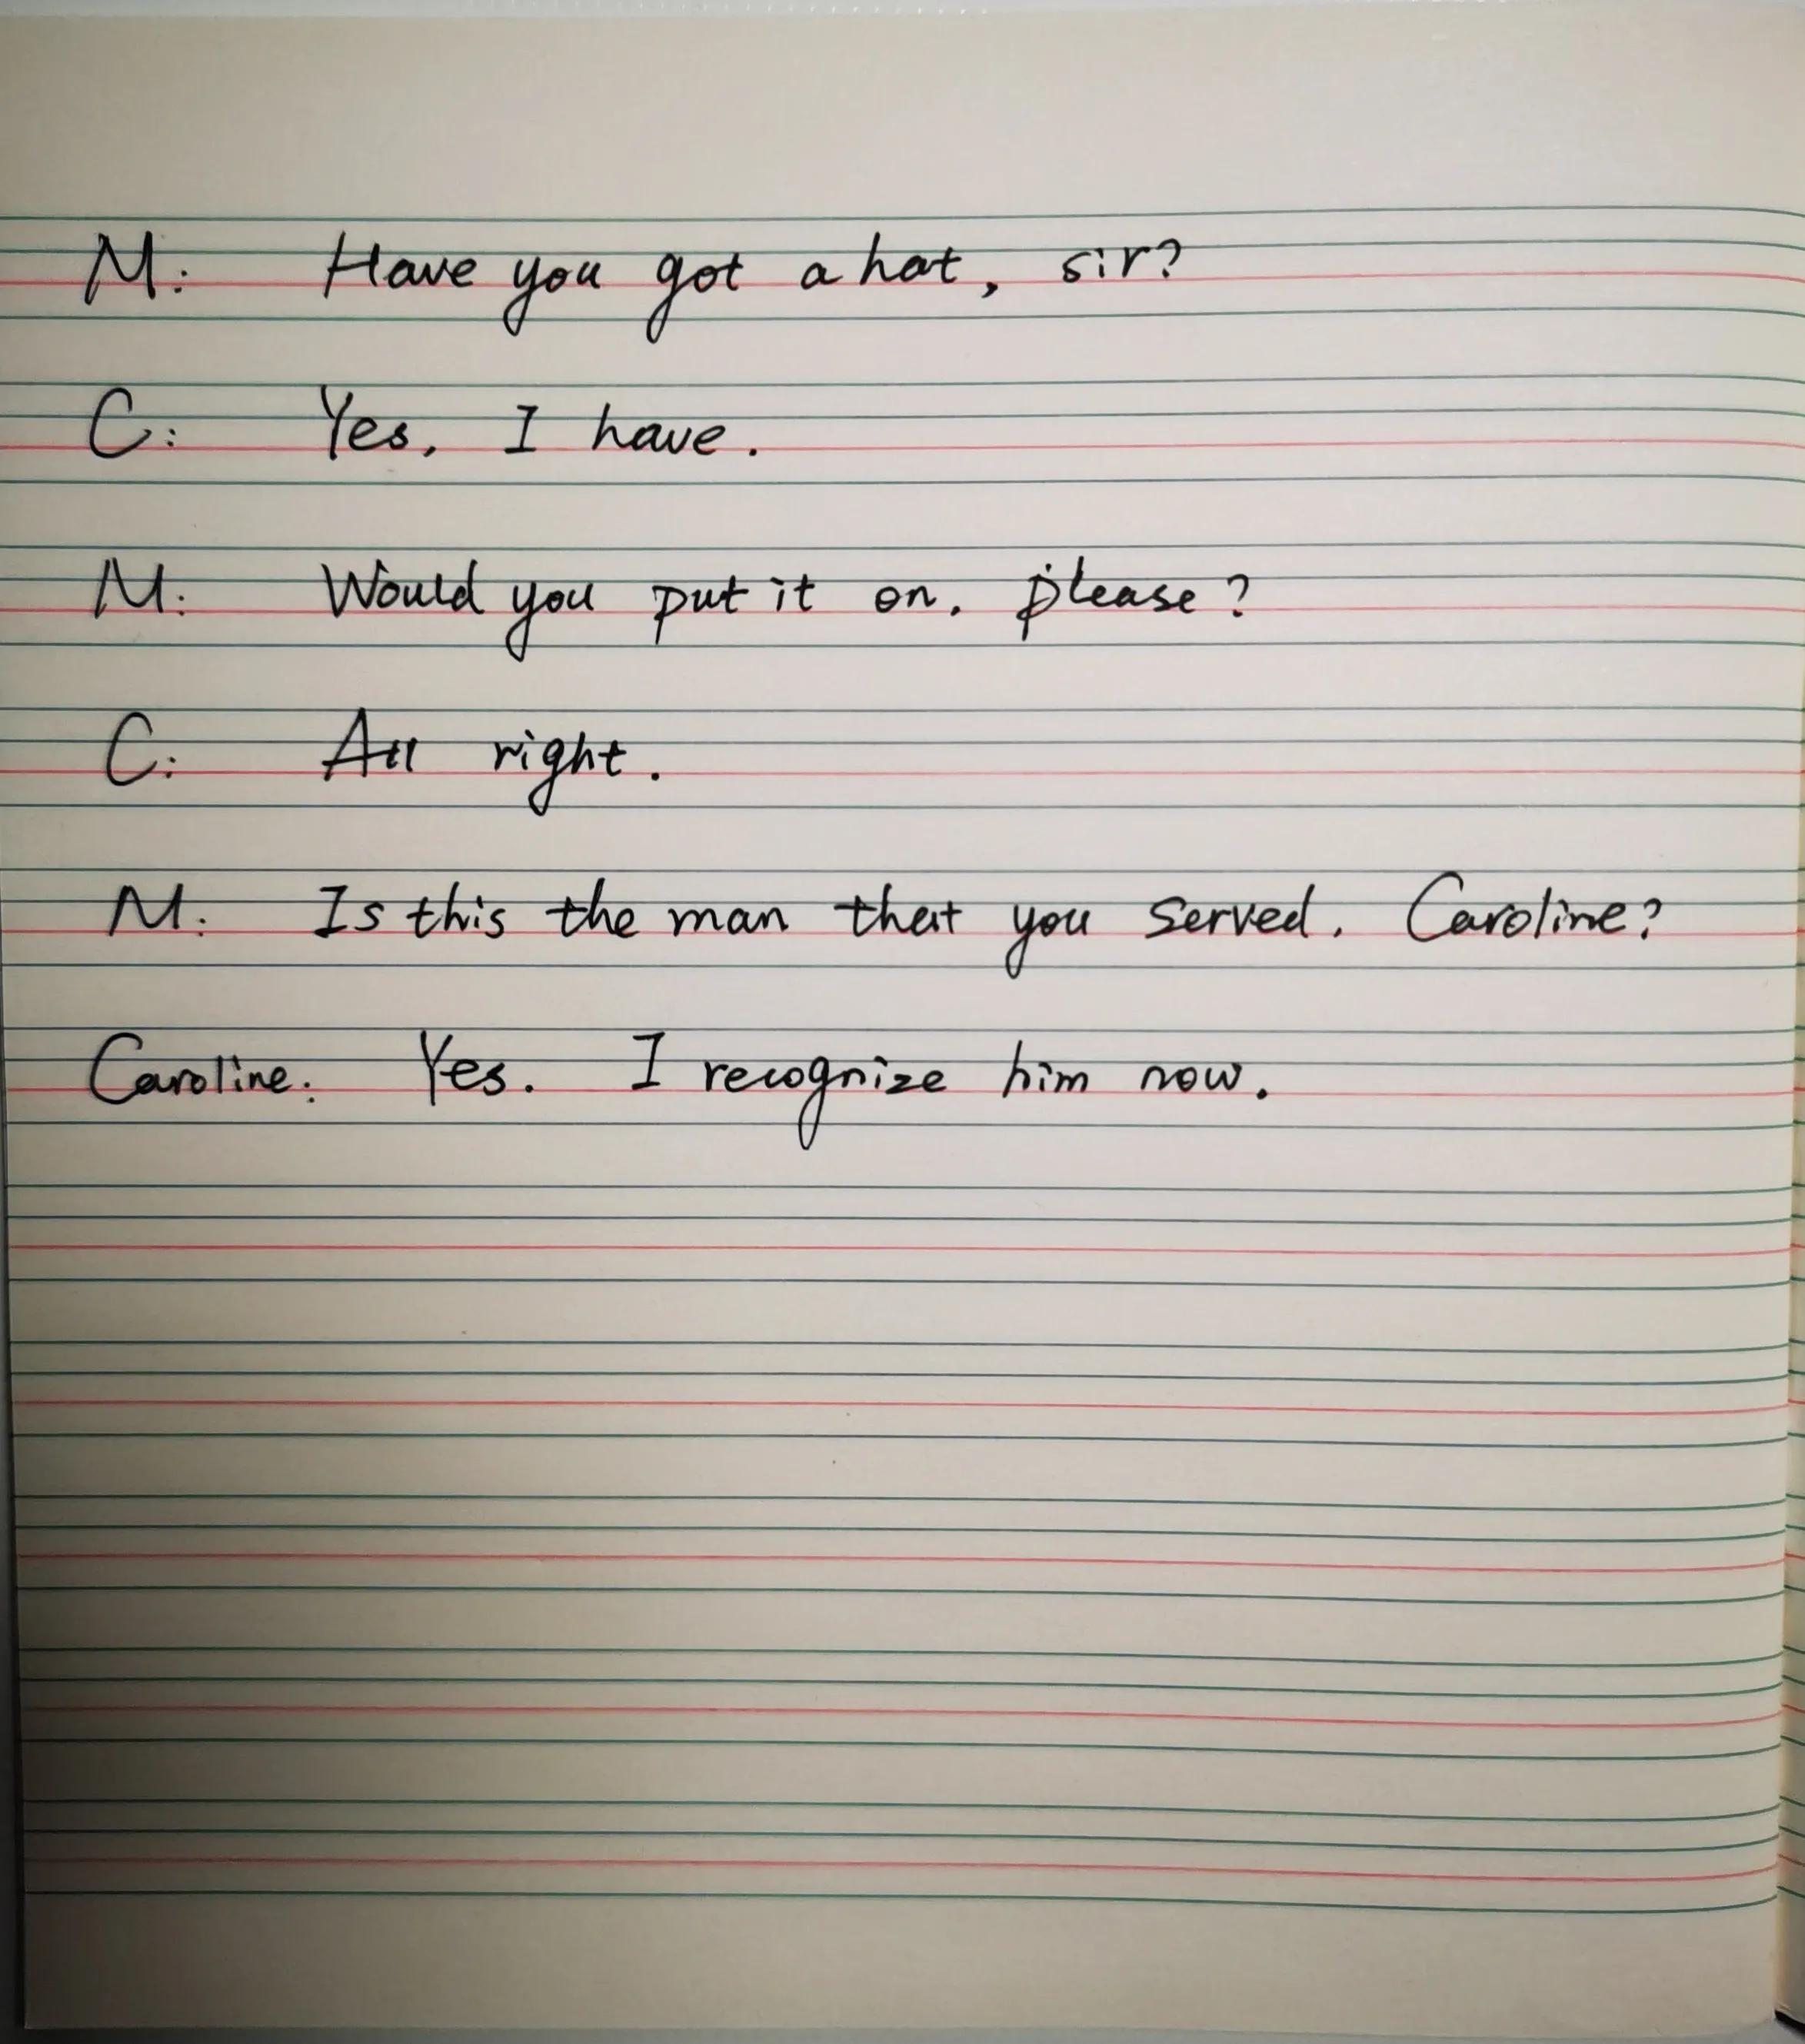 M: Have you got a hat, sir?
C: Yes, I have.
M: Would you put it on, please?
C: All right.
M: Is this the man that you served, Caroline?
Caroline: Yes. I recognize him now.